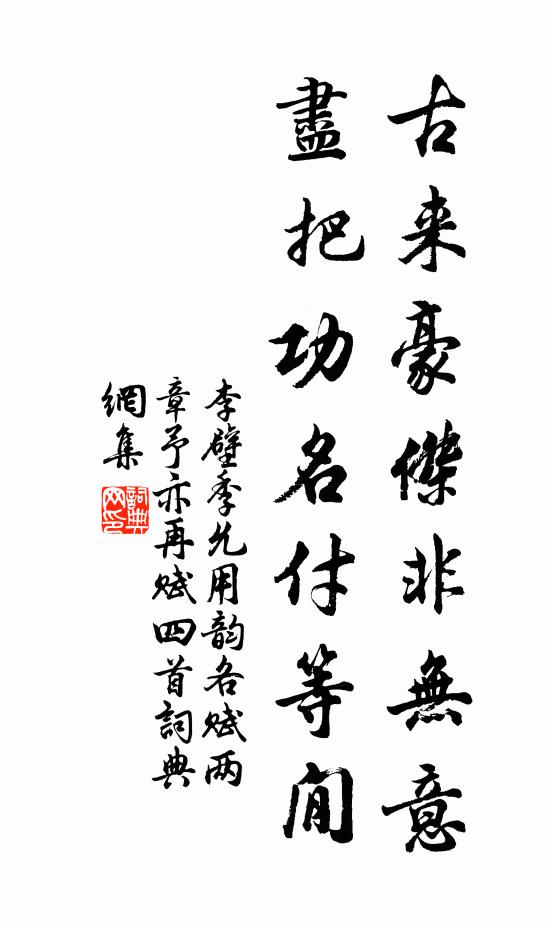 古来豪傑非無意
盡把功名付等閒
李壁季允用韵各赋两
章予亦再赋四首詞典
網集
詞典
网印